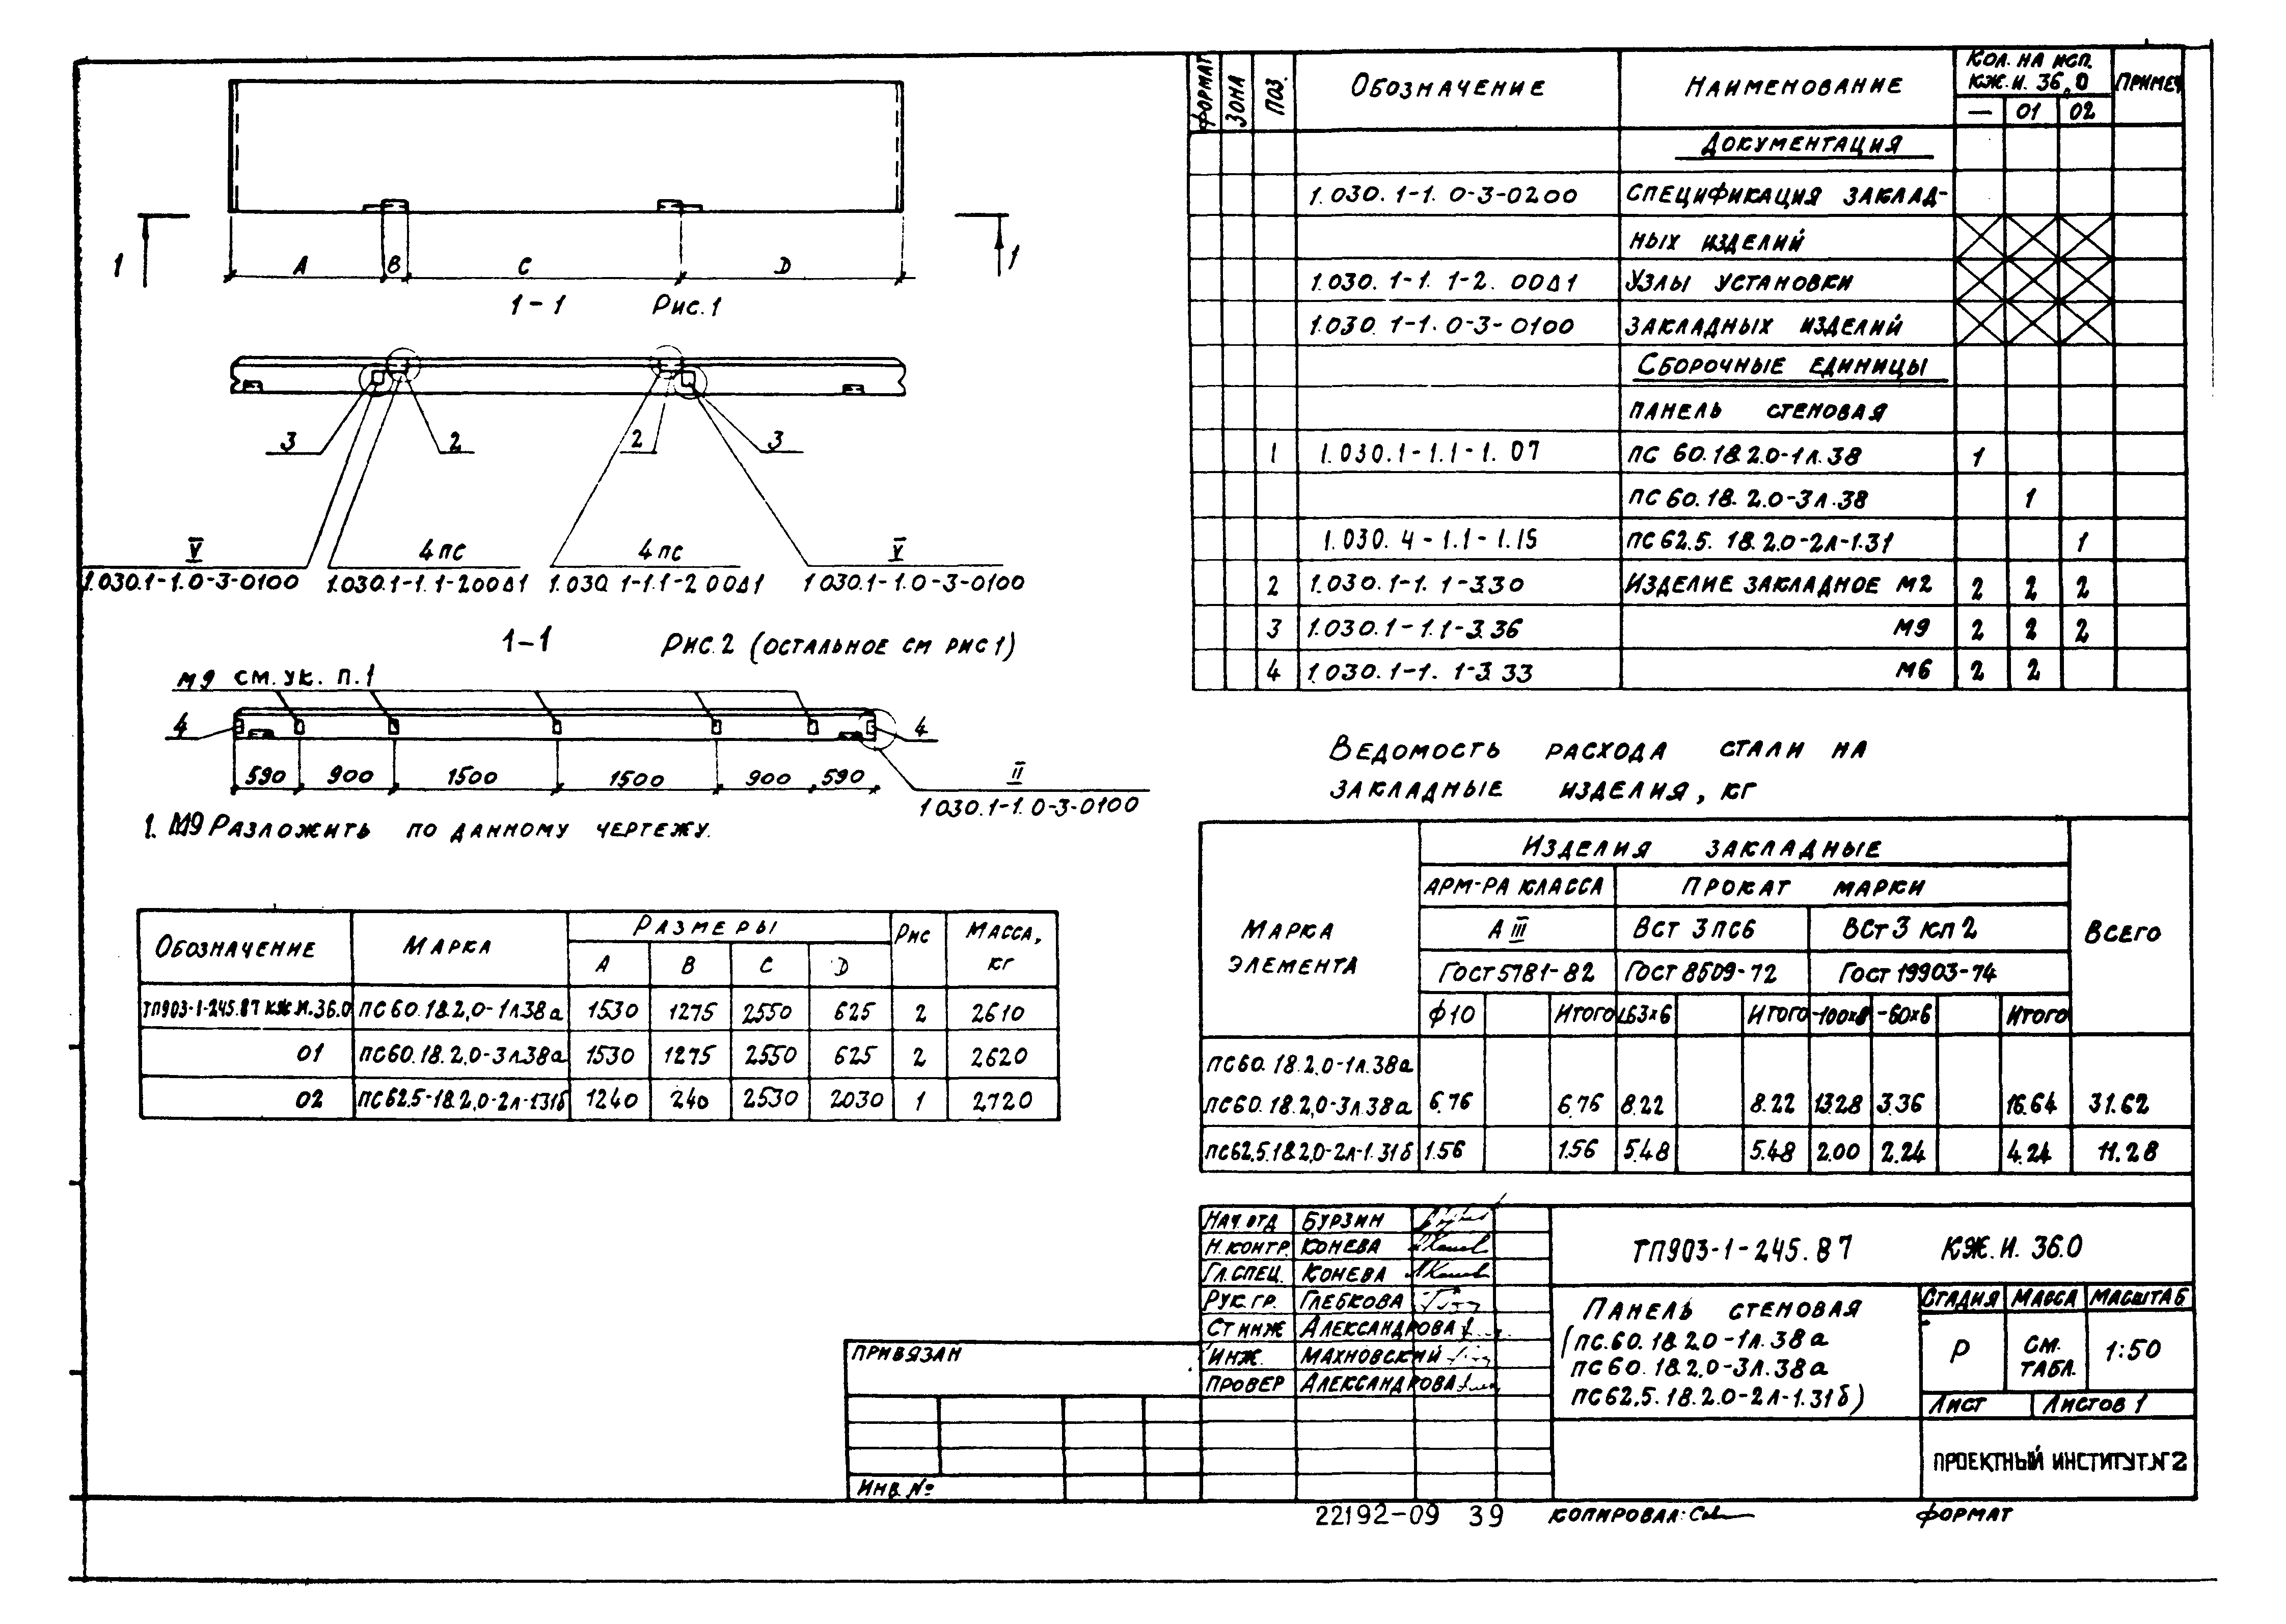 1
1
A
B
C
D
1-1
Рис.1
3
2
2
3
V
4пс
4пс
V
1.030.1-1.0-3-0100
1.030.1-1.1-200Д1
1.030.1-1.1-2 00Д1
1030.1-1.0-3-0100
1-1
Рис.2 (остальное см рис1)
М9 см. ук. п.1
4
4
590
900
1500
1500
900
590
II
1030.1-1.0-3-0100
1. М9 Разложить по данному чертежу.
Обозначение
Марка
Размеры
Рис
Масса, кг
A
B
C
D
ТП903-1-245.87 КЖ.И.36.0 ПС60.18.2,0-1л38а 1530 1275 2550 625 2 2610
01 ПС60.18.2,0-3л38а 1530 1275 2550 625 2 2620
02 ПС62.5-18.2,0-2л-131б 1240 240 2530 2030 1 2720
Формат
Зона
Поз.
Обозначение
Наименование
Кол. на исп. КЖ.И. 36.0
Примеч
—
01
02
Документация
1.030.1-1.0-3-0200 Спецификация заклад-
ных изделий
1.030.1-1.1-2.00Д1 Узлы установки
1.030.1-1.0-3-0100 закладных изделий
Сборочные единицы
Панель стеновая
1 1.030.1-1.1-1.07 ПС 60.18.2.0-1л.38 1
ПС60.18.2.0-3л.38 1
1.030.4-1.1-1.15 ПС62.5.18.2.0-2л-1.31 1
2 1.030.1-1.1-3.30 Изделие закладное М2 2 2 2
3 1.030.1-1.1-3.36 М9 2 2 2
4 1.030.1-1.1-3.33 М6 2 2
Ведомость расхода стали на
закладные изделия, кг
Марка элемента
Изделия закладные
Всего
Арм-ра класса
Прокат марки
А III
ВСт 3пс6
ВСт3 кп2
Гост5781-82
Гост8509-72
Гост19903-74
ф10
Итого
L63×6
Итого
-100×8
-60×6
Итого
ПС60.18.2,0-1л.38а
ПС60.18.2,0-3л.38а 6.76 6.76 8.22 8.22 13.28 3.36 16.64 31.62
ПС62.5.18.2,0-2л-1.31б 1.56 1.56 5.48 5.48 2.00 2.24 4.24 11.28
Нач.отд Бурзин
Н.контр. Конева
Гл.спец. Конева
Рук.гр. Глебкова
Ст инж Александрова
Инж. Махновский
Провер Александрова
ТП903-1-245.87 КЖ.И. 36.0
Панель стеновая
(ПС.60.18.2.0-1л.38а
ПС60.18.2.0-3л.38а
ПС62.5.18.2.0-2л-1.31б)
Стадия
Масса
Масштаб
Р
см. табл.
1:50
Лист
Листов 1
Проектный институт №2
Привязан
Инв.№
22192-09 39
Копировал:
Формат